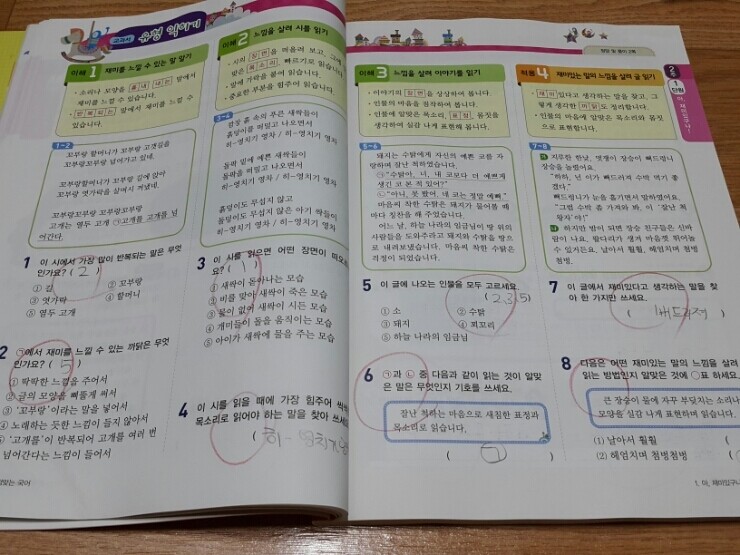 교과서 유형 익히기
이해 1 재미를 느낄 수 있는 말 알기
• 소리나 모양을 흉내 내는 말에서
재미를 느낄 수 있습니다.
• 반복되는 말에서 재미를 느낄 수
있습니다.
1~2
꼬부랑 할머니가 꼬부랑 고갯길을
꼬부랑꼬부랑 넘어가고 있네.
꼬부랑 할머니가 꼬부랑 길에 앉아
꼬부랑 엿가락을 살며시 꺼냈네.
꼬부랑꼬부랑 꼬부랑꼬부랑
고개는 열두 고개 ㉠고개를 고개를 넘
어간다.
1 이 시에서 가장 많이 반복되는 말은 무엇
인가요? ( 2 )
① 길 ② 꼬부랑
③ 엿가락 ④ 할머니
⑤ 열두 고개
2 ㉠에서 재미를 느낄 수 있는 까닭은 무엇
인가요? ( 5 )
① 딱딱한 느낌을 주어서
② 글의 모양을 삐뚤게 써서
③ '꼬부랑'이라는 말을 넣어서
④ 노래하는 듯한 느낌이 들지 않아서
⑤ '고개를'이 반복되어 고개를 여러 번
넘어간다는 느낌이 들어서
이해 2 느낌을 살려 시를 읽기
• 시의 장면을 떠올려 보고, 그에
맞은 목소리, 빠르기로 읽습니다.
• 말에 가락을 붙여 읽습니다.
• 중요한 부분을 힘주어 읽습니다.
3~4
캄캄 흙 속의 푸른 새싹들이
흙덩이를 떠밀고 나오면서
히-영치기 영차 / 히-영치기 영차
돌팍 밑에 예쁜 새싹들이
돌팍을 떠밀고 나오면서
히-영치기 영차 / 히-영치기 영차
흙덩이도 무섭지 않고
돌덩이도 무섭지 않은 아기 싹들이
히-영치기 영차 / 히-영치기 영차
3 이 시를 읽으면 어떤 장면이 떠오르
요? ( 1 )
① 새싹이 돋아나는 모습
② 비를 맞아 새싹이 죽은 모습
③ 물이 없어 새싹이 시든 모습
④ 개미들이 돌을 움직이는 모습
⑤ 아이가 새싹에 물을 주는 모습
4 이 시를 읽을 때에 가장 힘주어 씩씩
목소리로 읽어야 하는 말을 찾아 쓰세
( 히-영치기 영
맞는 국어
정답 및 풀이 2쪽
이해 3 느낌을 살려 이야기를 읽기
• 이야기의 장면을 상상하여 봅니다.
• 인물의 마음을 짐작하여 봅니다.
• 인물에 알맞은 목소리, 표정, 몸짓을
생각하여 실감 나게 표현해 봅니다.
5~6
돼지는 수탉에게 자신의 예쁜 코를 자
랑하며 잘난 척하였습니다.
㉠"수탉아, 너, 내 코보다 더 예쁘게
생긴 코 본 적 있어?"
㉡"아니, 못 봤어. 네 코는 정말 예뻐."
마음씨 착한 수탉은 돼지가 물어볼 때
마다 칭찬을 해 주었습니다.
어느 날, 하늘 나라의 임금님이 땅 위의
사람들을 도와주라고 돼지와 수탉을 땅으
로 내려보냈습니다. 마음씨 착한 수탉은
걱정이 되었습니다.
5 이 글에 나오는 인물을 모두 고르세요.
( 2,3,5 )
① 소 ② 수탉
③ 돼지 ④ 꾀꼬리
⑤ 하늘 나라의 임금님
6 ㉠과 ㉡ 중 다음과 같이 읽는 것이 알맞
은 말은 무엇인지 기호를 쓰세요.
잘난 척하는 마음으로 새침한 표정과
목소리로 읽습니다.
( ㉠ )
적용 4 재미있는 말의 느낌을 살려 글 읽기
• 재미있다고 생각하는 말을 찾고, 그
렇게 생각한 까닭도 정리합니다.
• 인물의 마음에 알맞은 목소리와 몸짓
으로 표현합니다.
7~8
㉮ 지루한 한낮, 멋쟁이 장승이 뻐드렁니
장승을 놀렸어요.
"하하, 넌 이가 뻐드러져 수박 먹기 좋
겠다."
뻐드렁니가 눈을 흘기면서 말하였어요.
"그럼 수박 좀 가져와 봐, 이 '잘난 척
왕자'야!"
㉯ 하지만 밤이 되면 장승 친구들은 신바
람이 나요. 팔다리가 생겨 마음껏 뛰어놀
수 있거든요. 날아서 훨훨, 헤엄치며 첨벙
첨벙.
7 이 글에서 재미있다고 생각하는 말을 찾
아 한 가지만 쓰세요.
( 뻐드러져
8 다음은 어떤 재미있는 말의 느낌을 살려
읽는 방법인지 알맞은 것에 ○표 하세요.
큰 장승이 물에 자꾸 부딪치는 소리나
모양을 실감 나게 표현하며 읽습니다.
(1) 날아서 훨훨 (
(2) 헤엄치며 첨벙첨벙 (
2주
1
단원
1. 아, 재미있구나